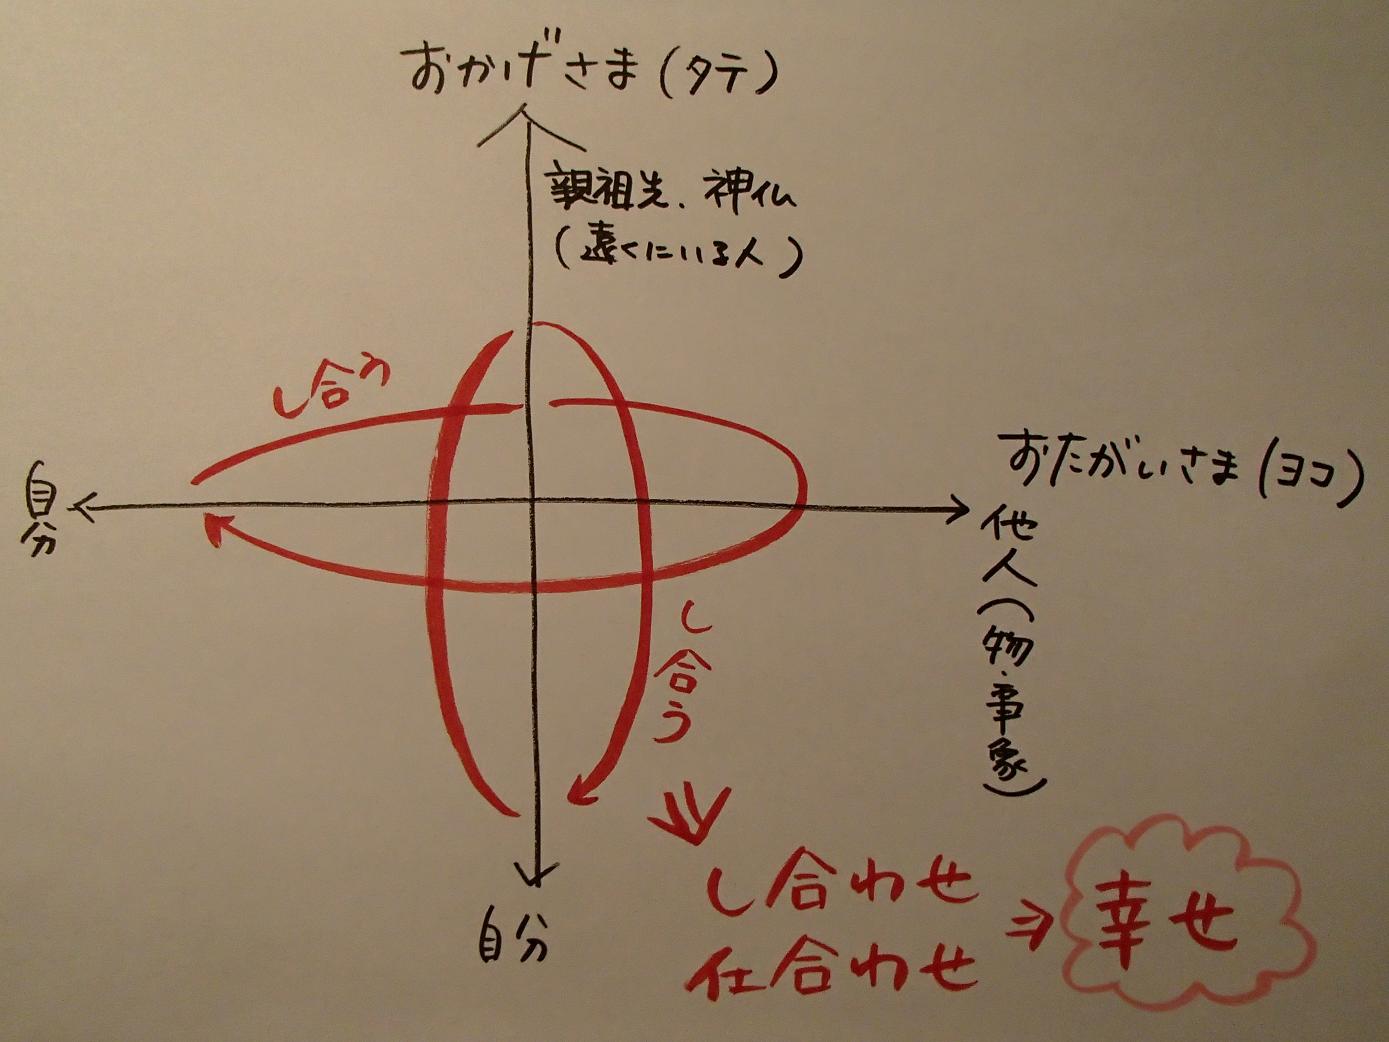 おかげさま(タテ)
親祖先、神仏
(遠くにいる人)
し合う
おたがいさま(ヨコ)
自分
他人(物・事象)
し合う
し合わせ
仕合わせ
⇒
幸せ
自分